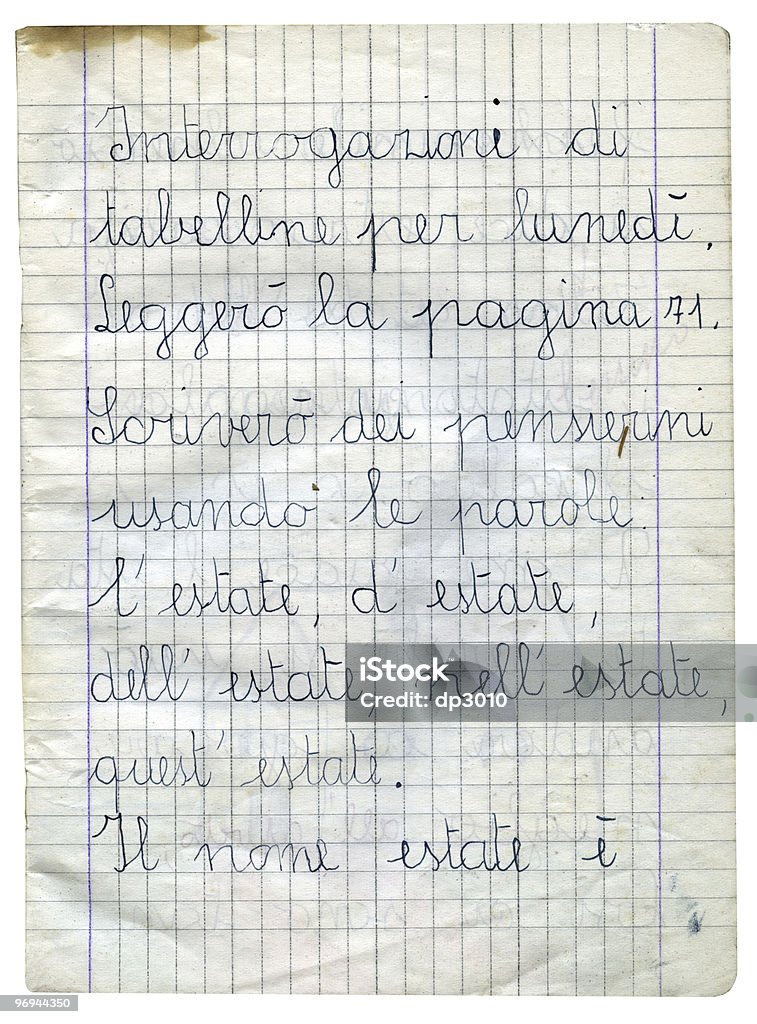 Interrogazioni di
tabelline per lunedì.
Leggerò la pagina 71.
Scriverò dei pensierini
usando le parole:
l' estate, d' estate,
dell' estate, nell' estate,
quest' estate.
Il nome estate è
iStock
Credit: dp3010
96944350